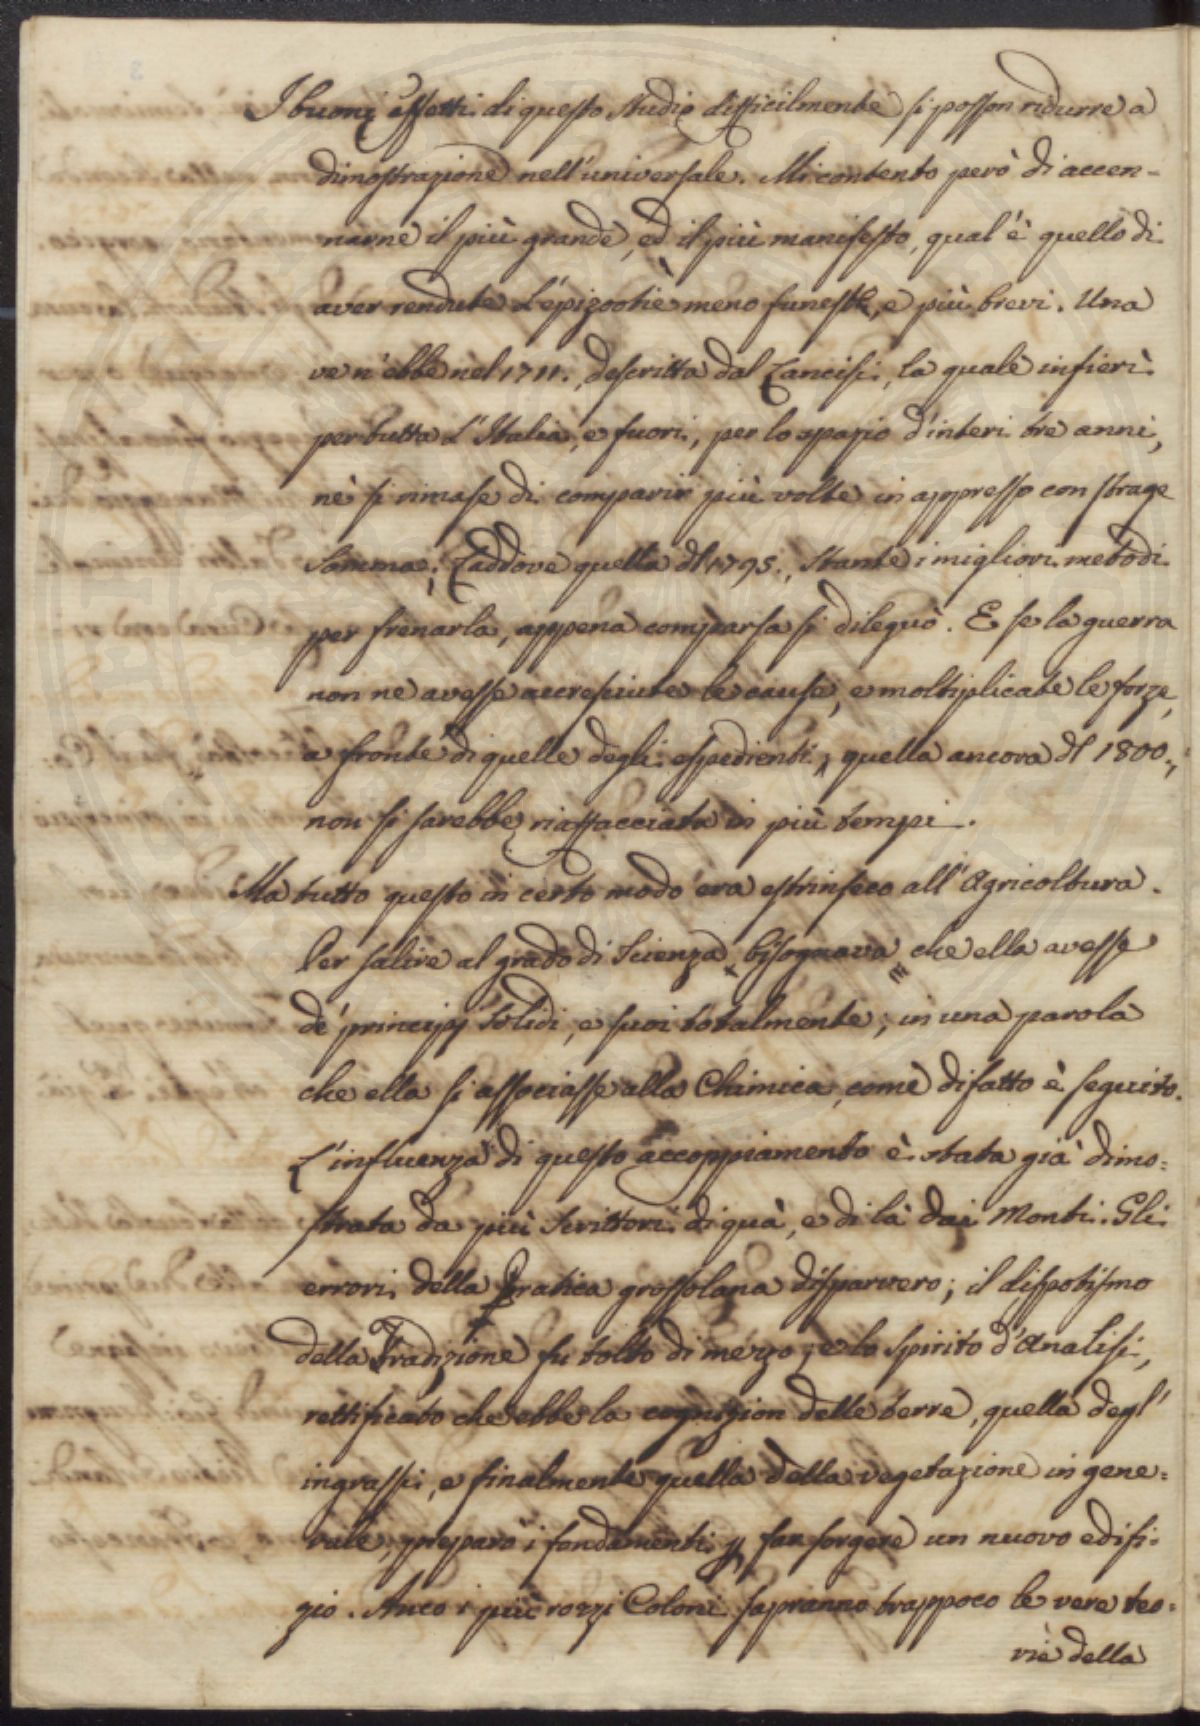 I buoni effetti di questo studio difficilmente si posson ridurre a
dimostrazione nell'universale. Mi contento però di accen-
narne il più grande, ed il più manifesto, qual'è quello di
aver rendute l'epizootie meno funeste, e più brevi. Una
ve n'ebbe nel 1711., descritta dal Lancisi, la quale infierì
per tutta l'Italia, e fuori, per lo spazio d'interi tre anni,
nè si rimase di comparir più volte in appresso con strage
somma; Laddove quella dl 1795., stante i migliori metodi
per frenarla, appena comparsa si dileguò. E se la guerra
non ne avesse accresciute le cause, e moltiplicate le forze,
a fronte di quelle degli espedienti, quella ancora dl 1800.,
non si sarebbe riaffacciata in più tempi.
Ma tutto questo in certo modo era estrinseco all'Agricoltura.
Per salire al grado di Scienza bisognava che ella avesse
de' principj solidi, e suoi totalmente; in una parola
che ella si associasse alla Chimica, come difatto è seguito.
L'influenza di questo accoppiamento è stata già dimo=
strata da più Scrittori di quà, e di là dai Monti. Gli
errori della Pratica grossolana disparvero; il dispotismo
della Tradizione fu tolto di mezzo; e lo spirito d'Analisi,
rettificato che ebbe la cognizion delle terre, quella degl'
ingrassi, e finalmente quella della vegetazione in gene=
rale, preparò i fondamenti p far sorgere un nuovo edifi-
zio. Anco i più rozzi Coloni sapranno trappoco le vere teo=
rie della